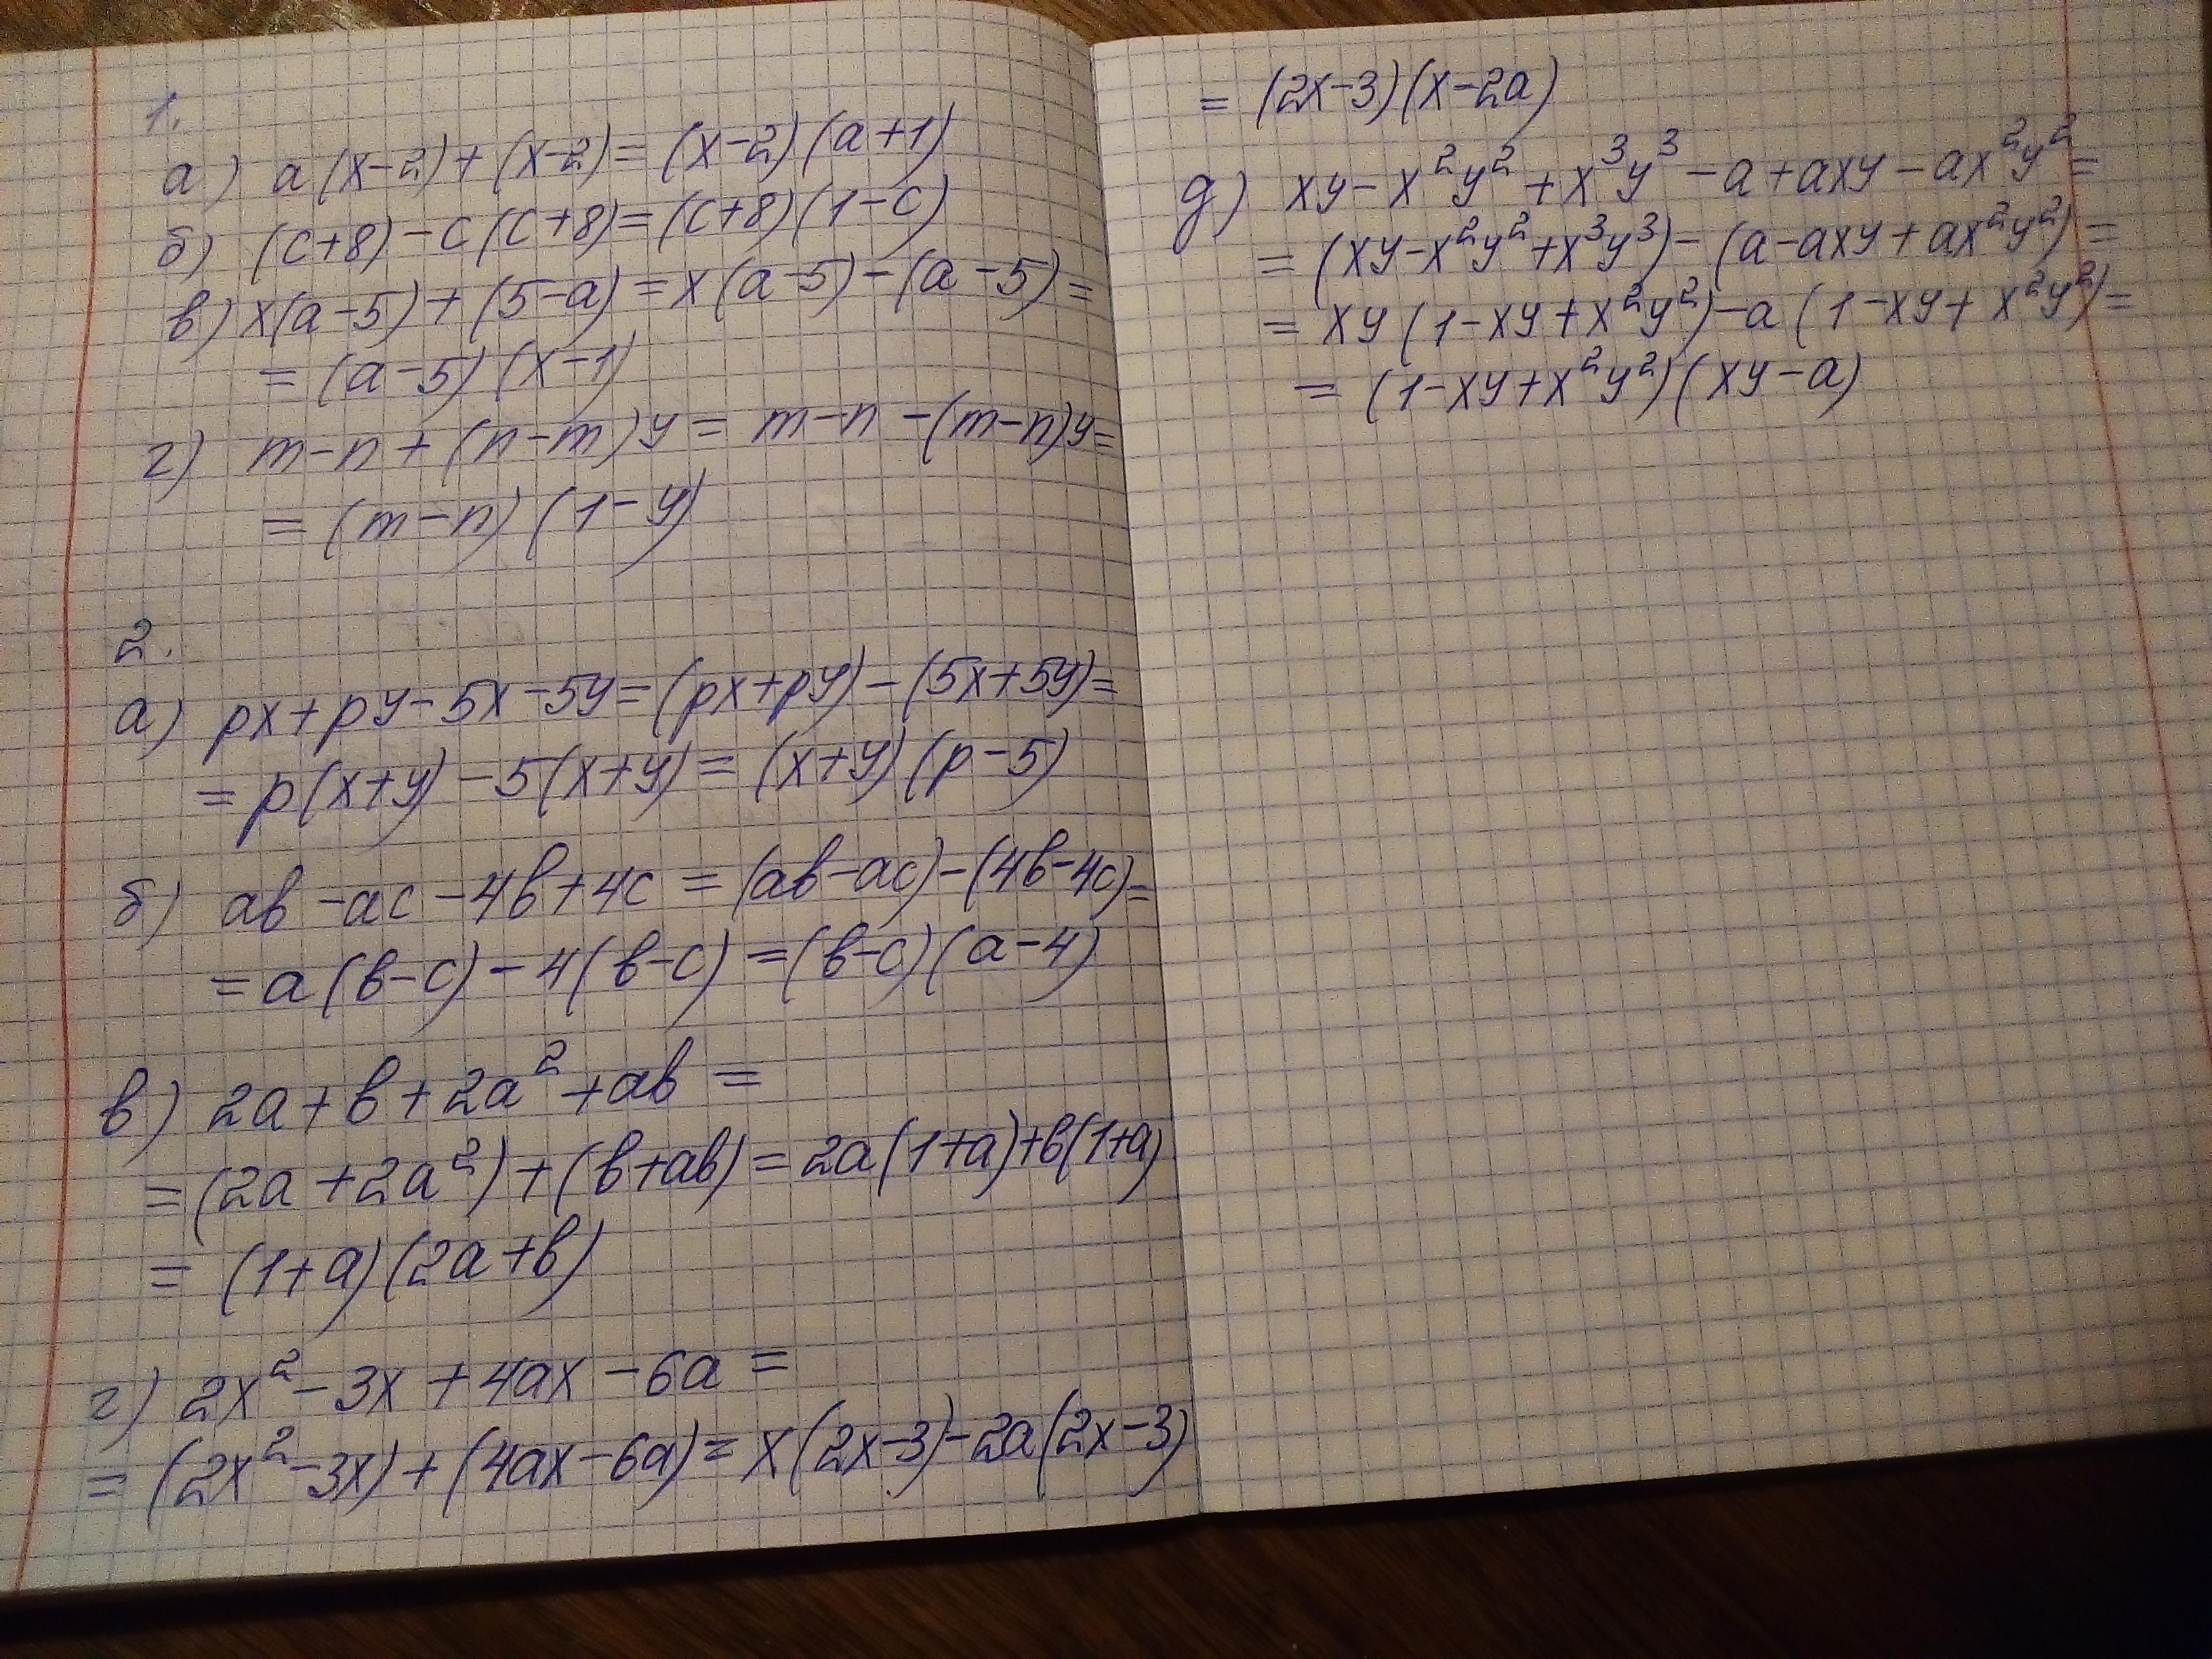 1.
а) a(x-2)+(x-2)=(x-2)(a+1)
б) (c+8)-c(c+8)=(c+8)(1-c)
в) x(a-5)+(5-a)=x(a-5)-(a-5)=
=(a-5)(x-1)
г) m-n+(n-m)y=m-n-(m-n)y=
=(m-n)(1-y)
2.
а) px+py-5x-5y=(px+py)-(5x+5y)=
=p(x+y)-5(x+y)=(x+y)(p-5)
б) ab-ac-4b+4c=(ab-ac)-(4b-4c)=
=a(b-c)-4(b-c)=(b-c)(a-4)
в) 2a+b+2a²+ab=
=(2a+2a²)+(b+ab)=2a(1+a)+b(1+a)
=(1+a)(2a+b)
г) 2x²-3x+4ax-6a=
=(2x²-3x)+(4ax-6a)=x(2x-3)-2a(2x-3)
=(2x-3)(x-2a)
д) xy-x²y²+x³y³-a+axy-ax²y²=
=(xy-x²y²+x³y³)-(a-axy+ax²y²)=
=xy(1-xy+x²y²)-a(1-xy+x²y²)=
=(1-xy+x²y²)(xy-a)